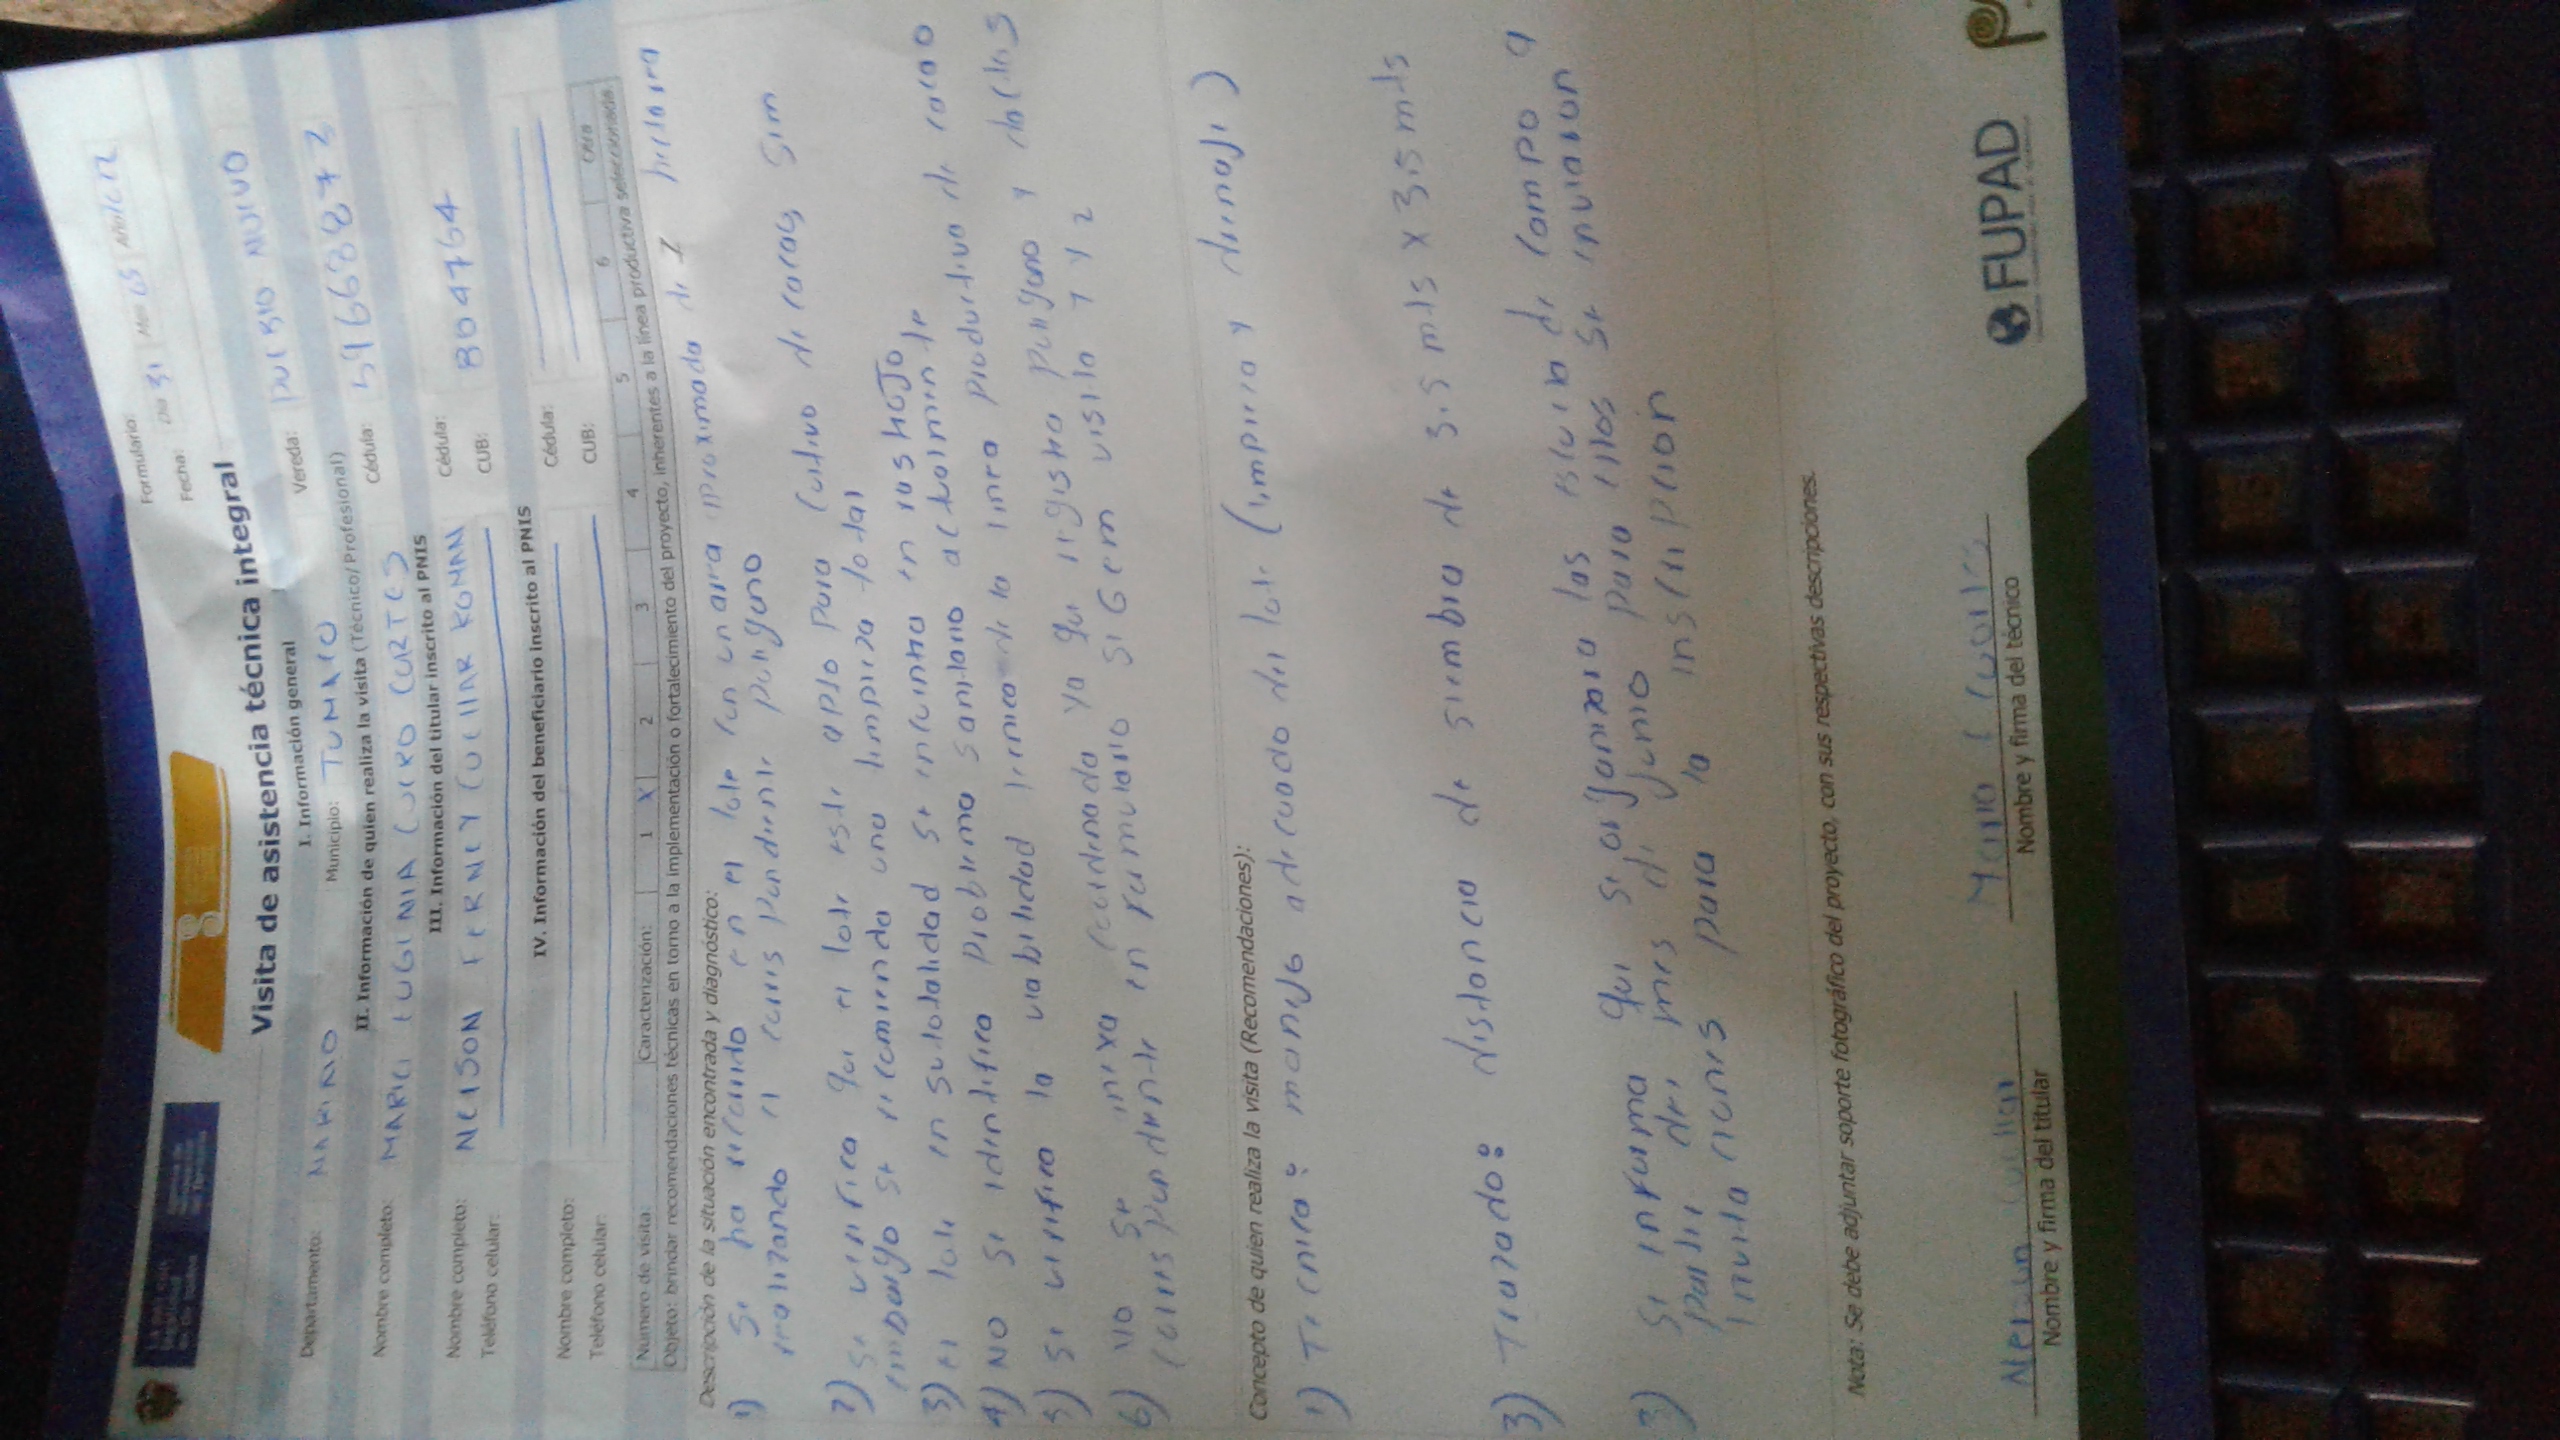 Formulario:
Fecha: Día 31 Mes 05 Año
Visita de asistencia técnica integral
I. Información general
Departamento: NARIÑO Municipio: TUMACO Vereda: PUEBLO NUEVO
II. Información de quien realiza la visita (Técnico/Profesional)
Nombre completo: MARIA EUGENIA CUERO CORTES Cédula: 59668873
III. Información del titular inscrito al PNIS
Nombre completo: NELSON FERNEY CUELLAR ROMAN Cédula: 8004764
Teléfono celular: CUB:
IV. Información del beneficiario inscrito al PNIS
Nombre completo: Cédula:
Teléfono celular: CUB:
Número de visita: Caracterización: 1 X 2 3 4 5 6 Otra
Objeto: brindar recomendaciones técnicas en torno a la implementación o fortalecimiento del proyecto, inherentes a la línea productiva seleccionada.
Descripción de la situación encontrada y diagnóstico:
1) Se ha recorrido en el lote con un area aproximada de 1 hectarea
realizando el correspondiente poligono
2) Se verifica que el lote este apto para cultivo de cacao, sim
embargo se recomienda una limpieza total
3) el lote en su totalidad se encuentra en rastrojo
4) NO se identifica problema sanitario actualmente
5) Se verifica la viabilidad tecnica de la linea productiva de cacao
6) No se anexa coordenada ya que registra poligono y datos
correspondiente en formulario SIGEM visita 1 y 2
Concepto de quien realiza la visita (Recomendaciones):
1) Tecnica: manejo adecuado del lote (limpieza y drenaje)
3) Trazado: distancia de siembra de 3.5 mts x 3.5 mts
3) Se informa que se organizara las escuela de campo a
partir del mes de junio para ellos se enviaran
invitaciones para la inscripcion
Nota: Se debe adjuntar soporte fotográfico del proyecto, con sus respectivas descripciones.
Nelson Cuellar
Nombre y firma del titular
Maria E Cuero
Nombre y firma del técnico
FUPAD